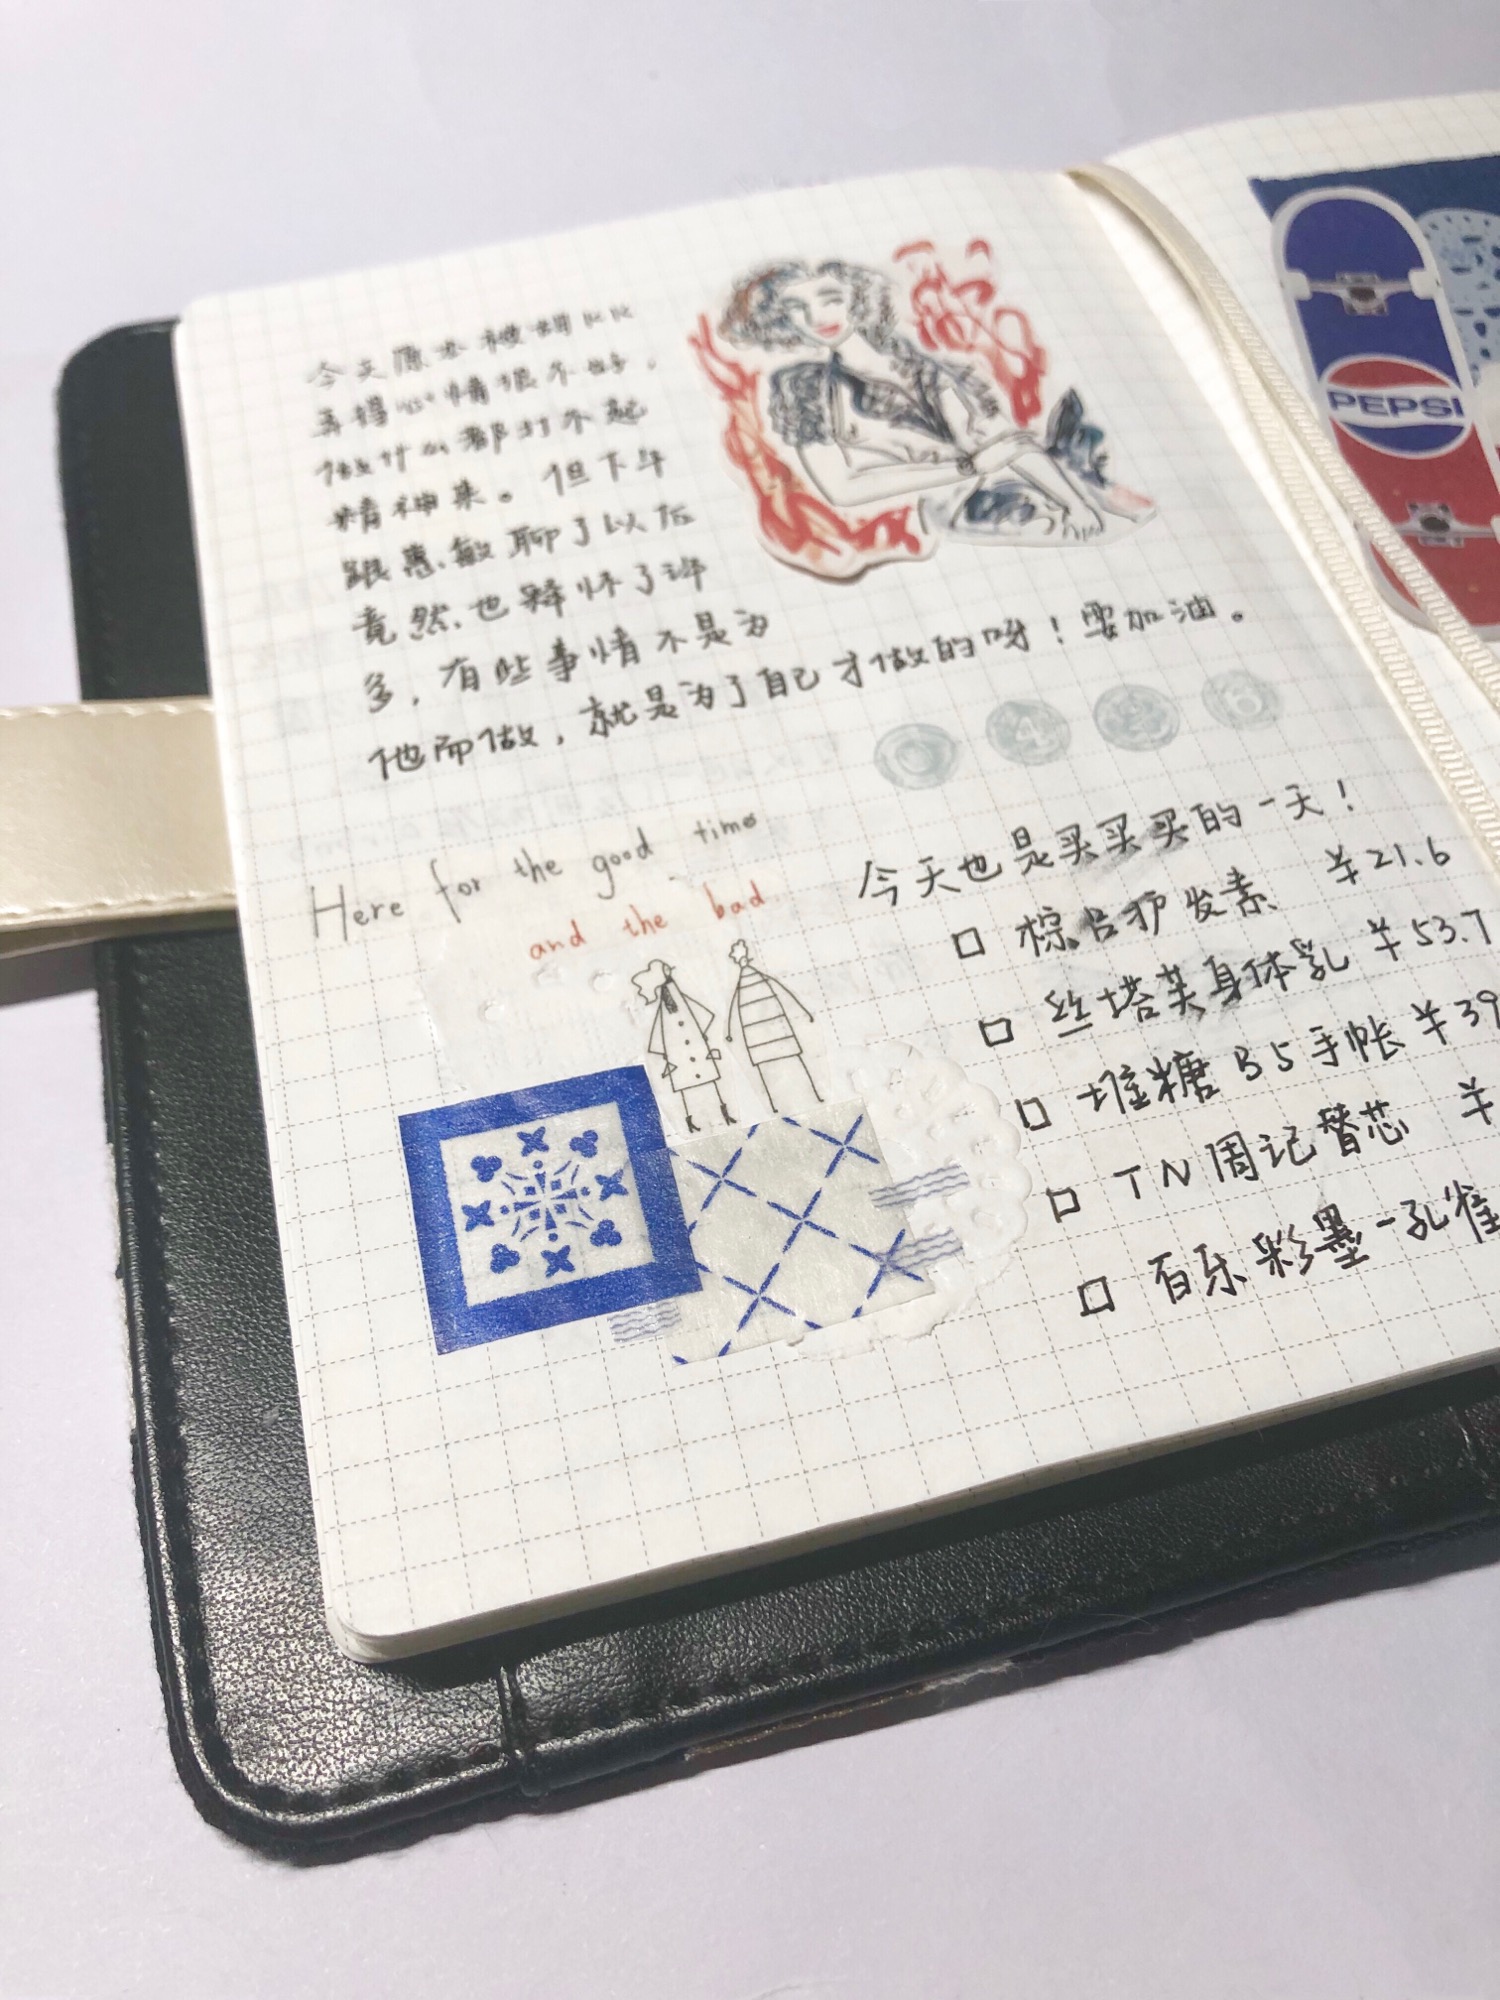 今天原本被胡KK
弄得心情很不好，
做什么都打不起
精神来。但下午
跟惠敏聊了以后
竟然也释怀了许
多，有些事情不是为
他而做，就是为了自己才做的呀！要加油。
4
6
Here for the good time
and the bad
今天也是买买买的一天！
□ 棕吕护发素 ¥21.6
□ 丝塔芙身体乳 ¥53.7
□ 堆糖 B5手帐 ¥39
□ TN周记替芯 ¥
□ 百乐彩墨-孔雀
PEPSI